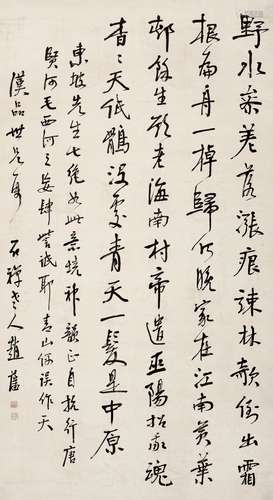 野水參差落漲痕疎林欹倒出霜
根扁舟一棹歸何處家在江南黃葉
邨餘生欲老海南村帝遣巫陽招我魂
杳〻天低鶻沒處青天一髮是中原
東坡先生七絕如此意境神韻正自抗行唐
賢何毛西河之妄肆訾詆耶青山何誤作天
漢品世兄 石禪老人趙藩